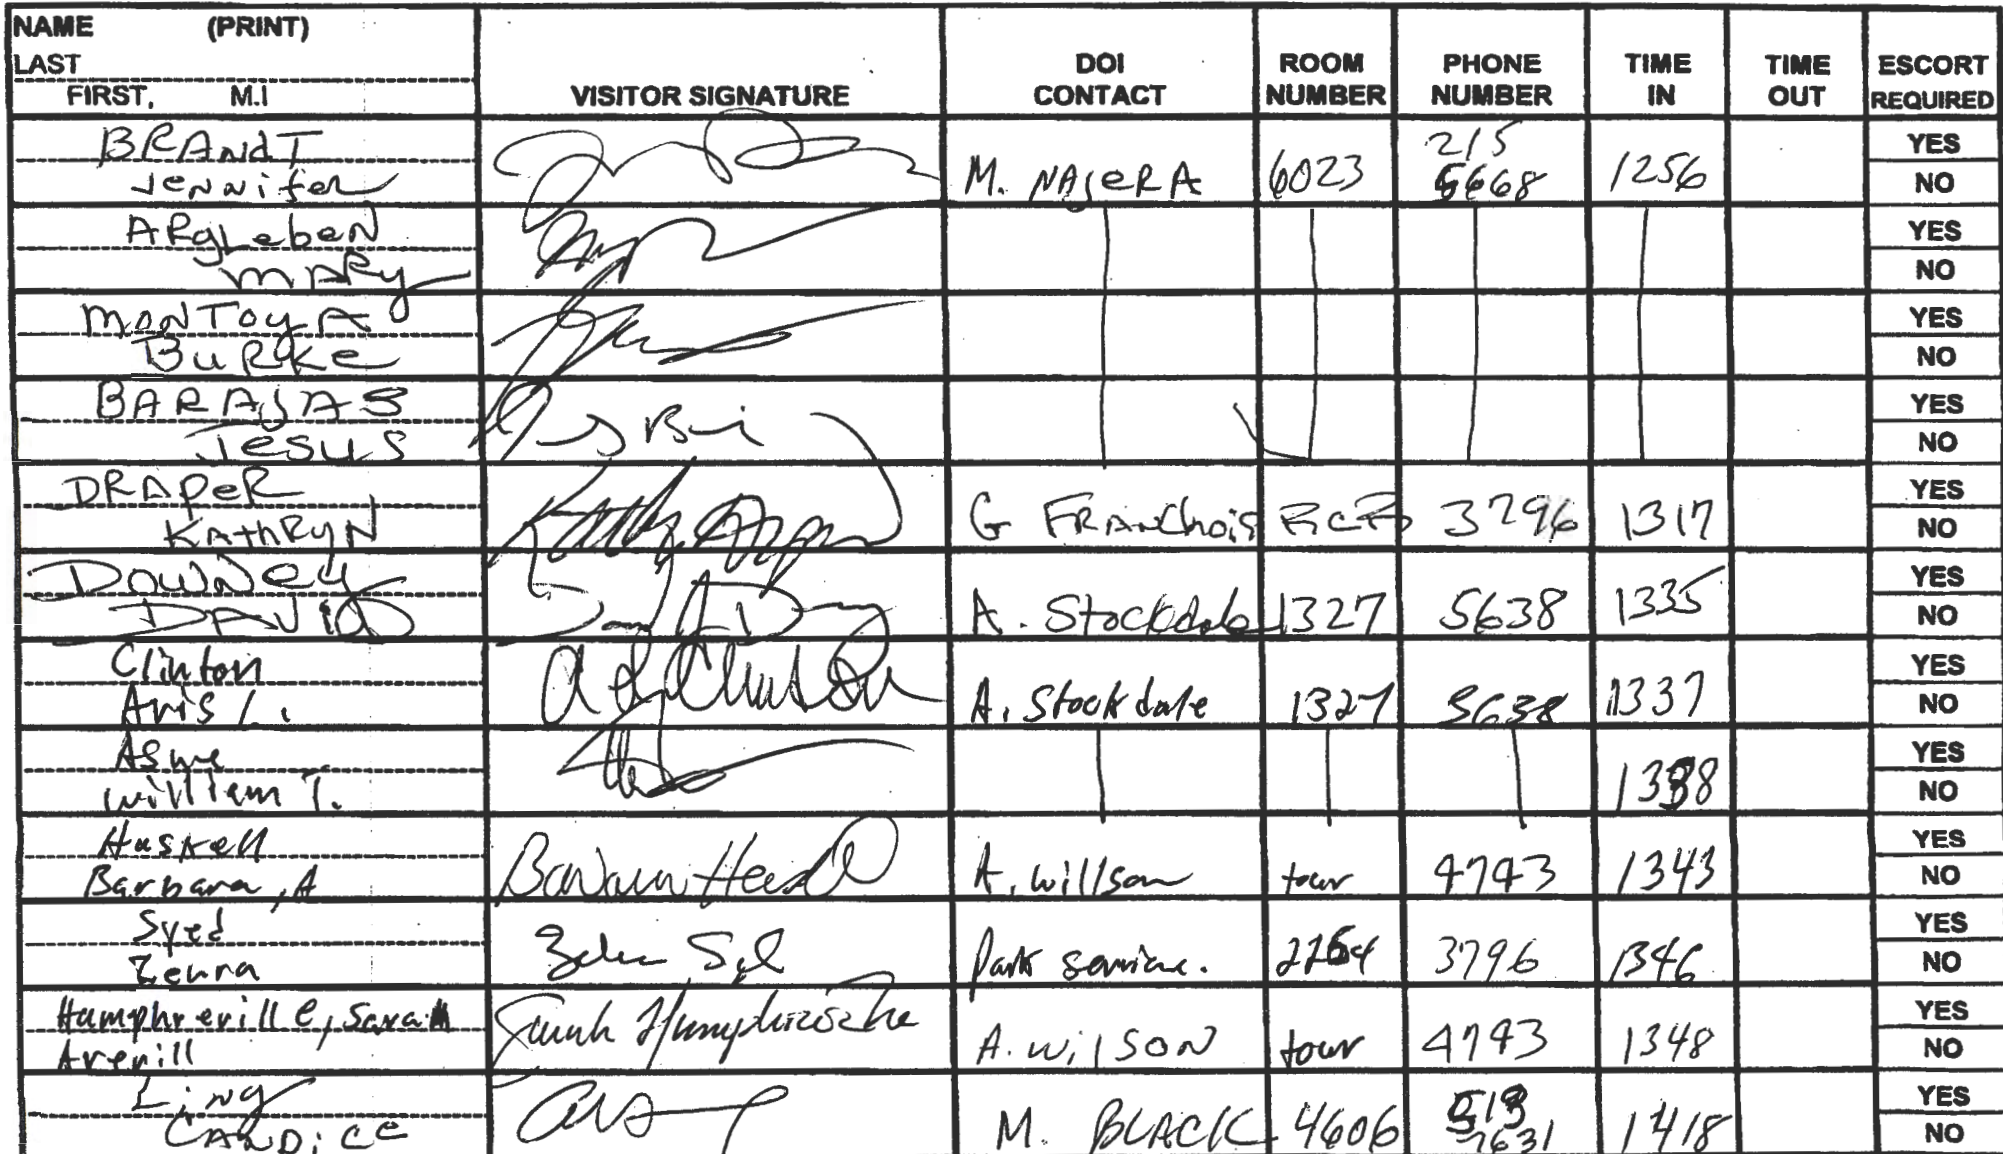 NAME (PRINT)
LAST
FIRST, M.I
VISITOR SIGNATURE
DOI
CONTACT
ROOM
NUMBER
PHONE
NUMBER
TIME
IN
TIME
OUT
ESCORT
REQUIRED
BRANdT
Jennifer
M. NAJeRA 6023 215
5668 1256
YES
NO
ARgLebeN
MARy
YES
NO
MONToyA
BuRKe
YES
NO
BARAJAS
Jesus
YES
NO
DRApeR
KAthRyN
G FRANChois 3796 1317
YES
NO
DowNey
DAVID
A. Stockdale 1327 5638 1335
YES
NO
Clinton
Aris L.
A. Stockdale 1327 5638 1337
YES
NO
William T.
1338
YES
NO
Haskell
Barbara, A
A. Willson tour 4743 1343
YES
NO
Syed
Zehra
Park service. 3796 1346
YES
NO
Humphreville, Sarah
Averill
A. WilSON tour 4743 1348
YES
NO
Ling
CANDiCe
M. BLACK 4606 513
7631 1418
YES
NO